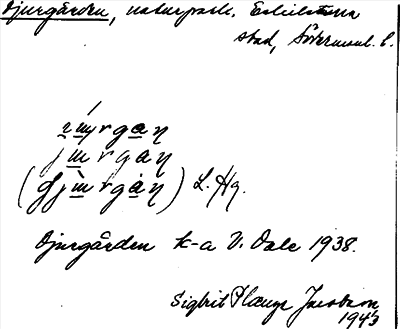 Djurgården, naturpark. Eskilstuna
stad, Södermanl. l.
jɯrgaɳ
(djɯ̀rgȧɳ) L. Hg.
Djurgården k-a V. Dale 1938.
Sigbrit Plænge Jacobson
1943